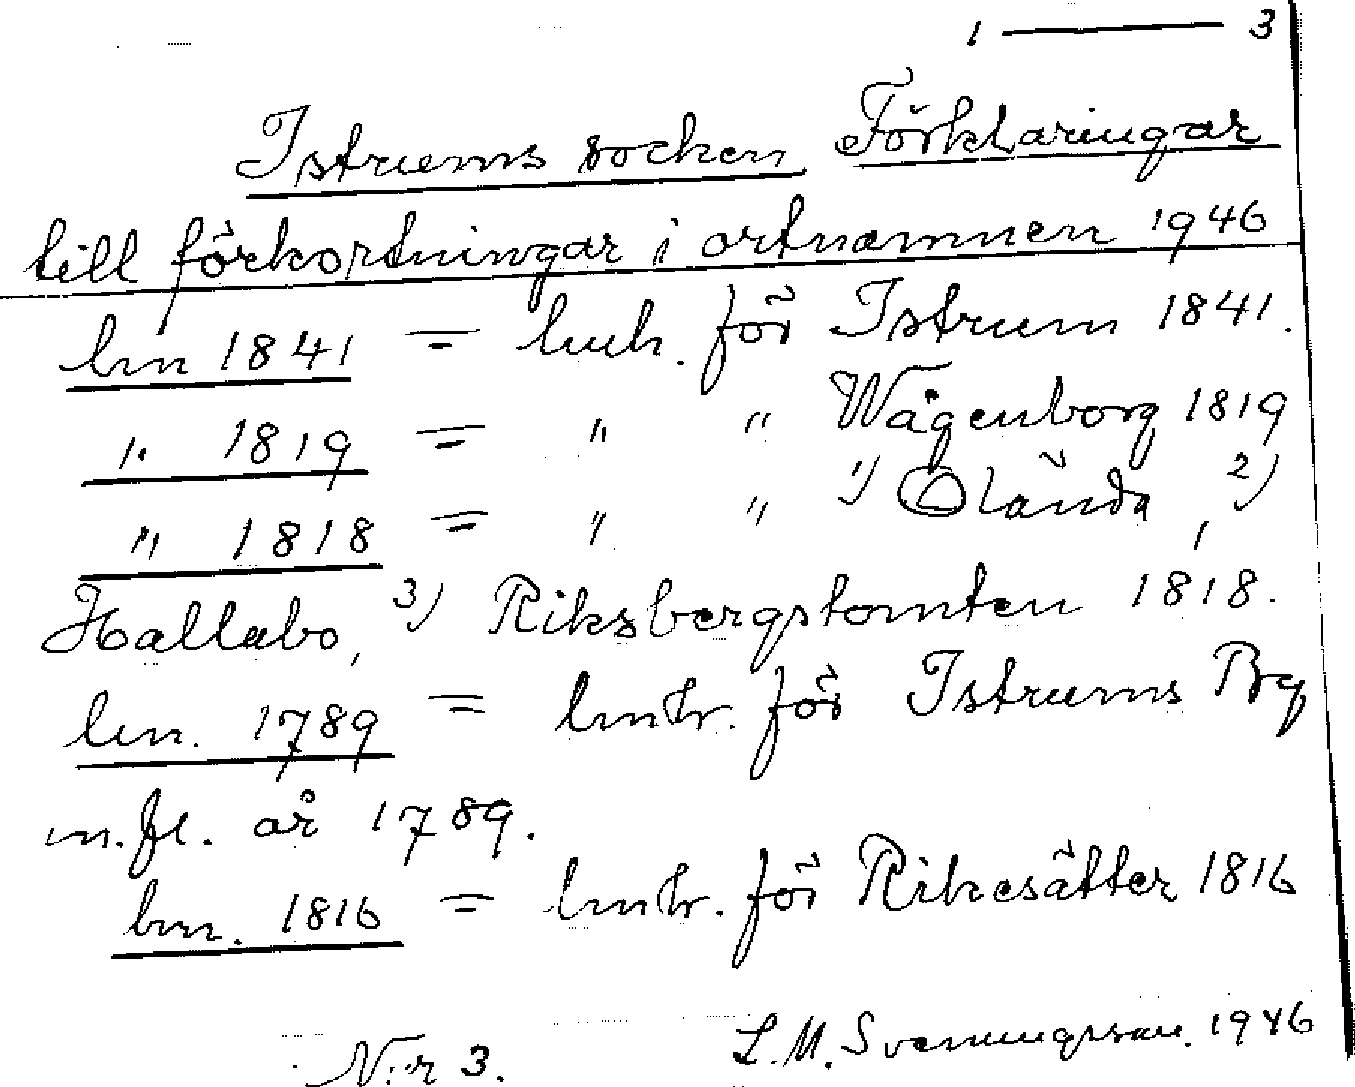 1 — 3
Istrums socken Förklaringar
till förkortningar i ortnamnen 1946
lm 1841 = lmh. för Istrum 1841.
" 1819 = " " Wågenborg 1819
" 1818 = " " 1) Ölanda, 2)
Hallabo, 3) Riksbergstomten 1818.
lm. 1789 = lmh. för Istrums Bg
m.fl. år 1789.
lm. 1816 = lmh. för Rikesätter 1816
N:r 3. L. M. Svenungsson. 1946